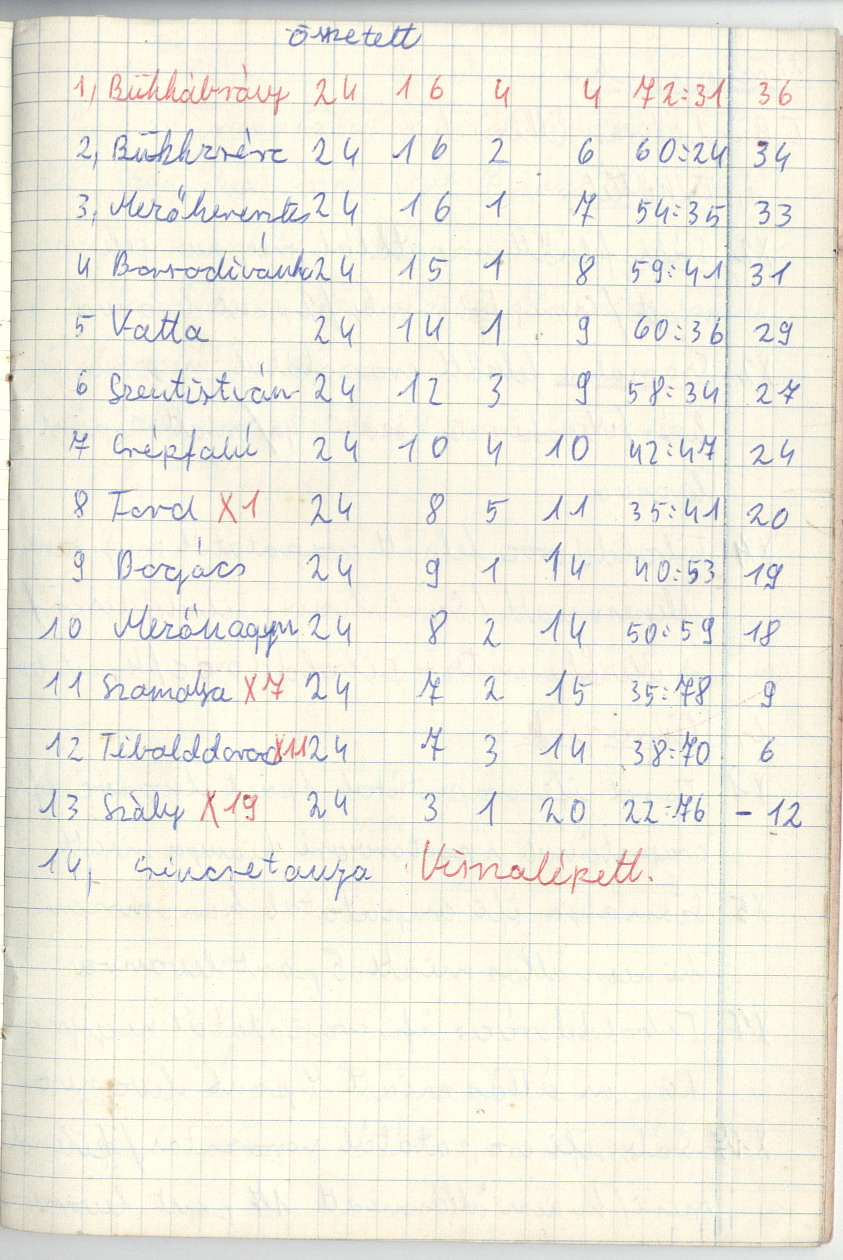 Összetett
1, Bükkábrány 24 16 4 4 72:31 36
2, Bükkzsérc 24 16 2 6 60:24 34
3, Mezőkeresztes 24 16 1 7 54:35 33
4 Borsodivánka 24 15 1 8 59:41 31
5 Vatta 24 14 1 9 60:36 29
6 Szentistván 24 12 3 9 58:34 27
7 Cserépfalu 24 10 4 10 42:47 24
8 Tard X1 24 8 5 11 35:41 20
9 Bogács 24 9 1 14 40:53 19
10 Mezőnagym 24 8 2 14 50:59 18
11 Szomolya X7 24 7 2 15 35:78 9
12 Tibolddaroc X11 24 7 3 14 38:70 6
13 Sály X19 24 3 1 20 22:76 -12
14, Csincsetanya Visszalépett.